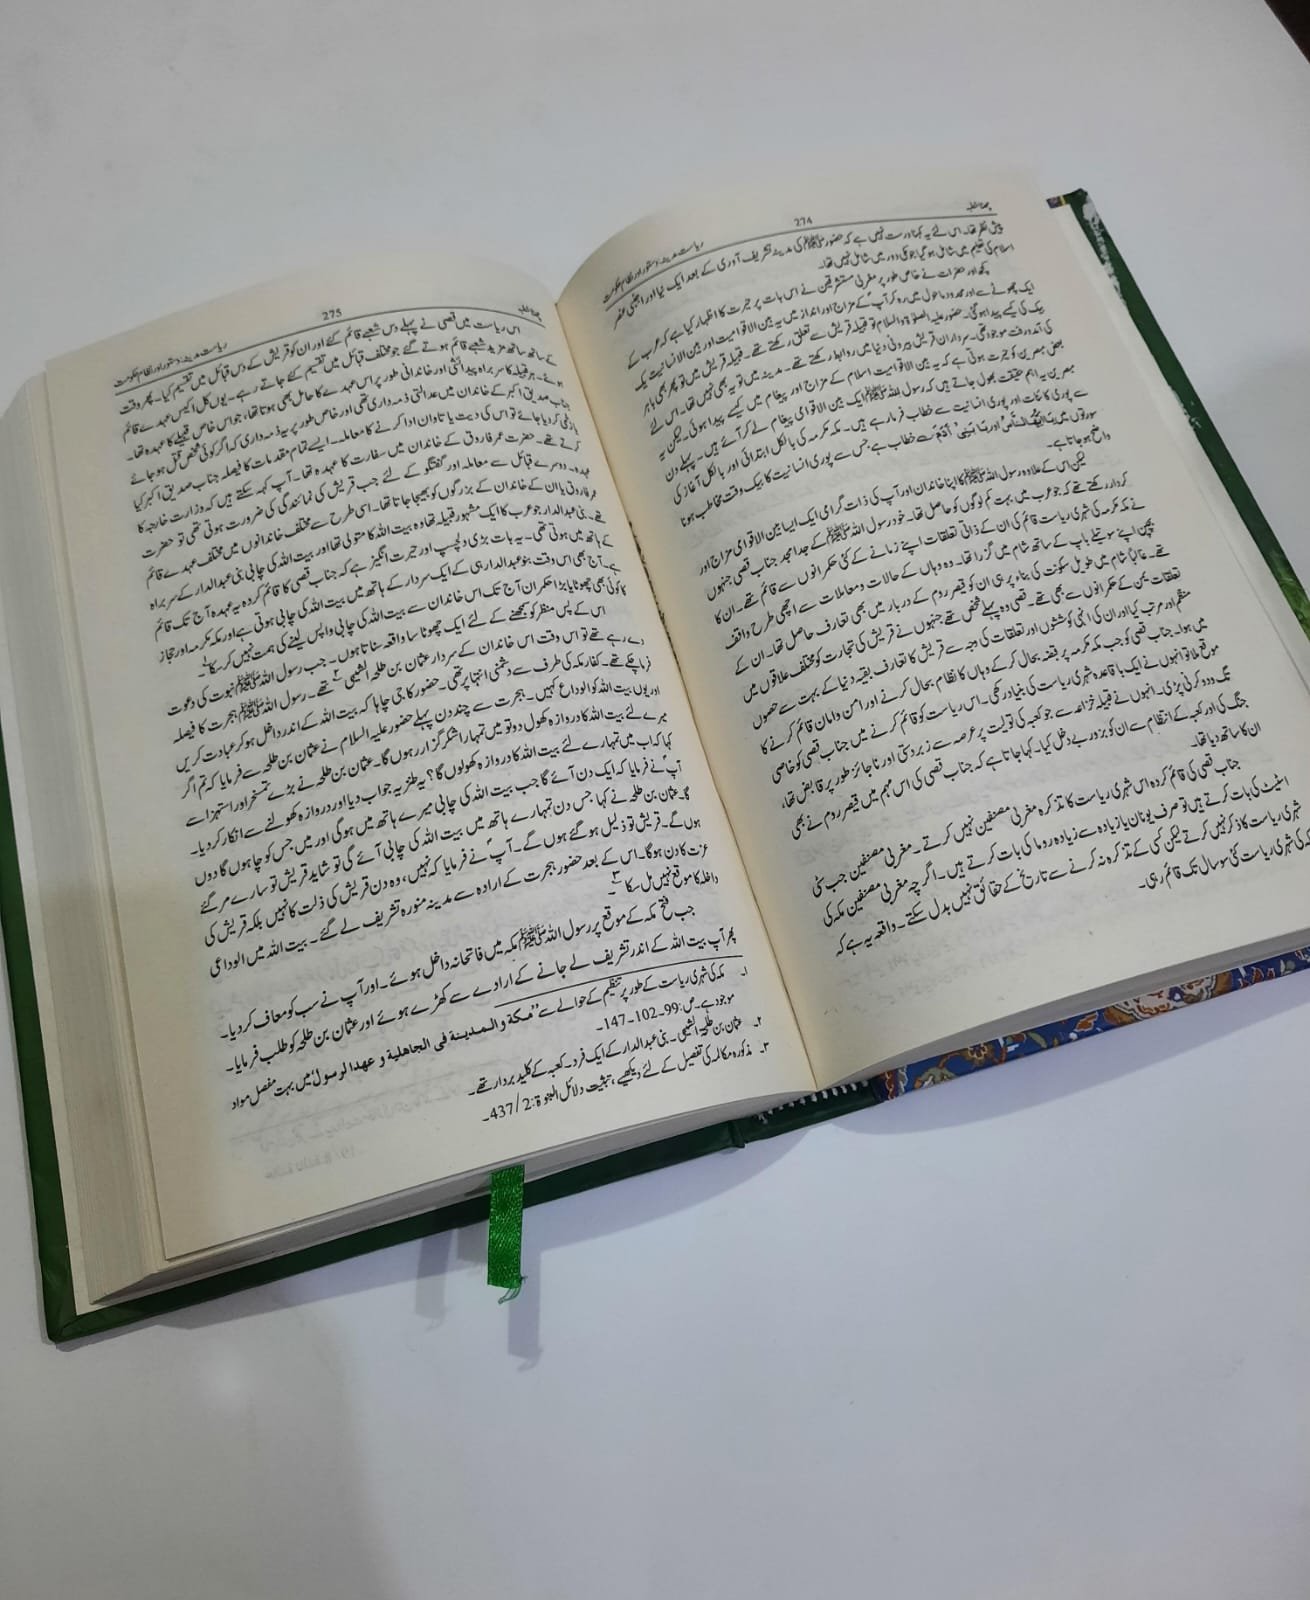 چھٹا خطبہ
274
ریاست مدینہ: دستور اور نظام حکومت
پیش نظر تھا۔ اس لئے یہ کہنا درست نہیں ہے کہ حضور ﷺ کی مدینہ تشریف آوری کے بعد ایک نیا اور اجنبی عنصر
اسلام کی تعلیم میں شامل ہو گیا جو مکی دور میں شامل نہیں تھا۔
کچھ اور حضرات نے خاص طور پر مغربی مستشرقین نے اس بات پر حیرت کا اظہار کیا ہے کہ عرب کے
ایک چھوٹے سے اور محدود ماحول میں رہ کر آپ کے مزاج اور انداز میں یہ بین الاقوامیت اور بین الانسانیت یک
بیک کیسے پیدا ہو گئی۔ حضور علیہ الصلوٰۃ والسلام تو قبیلہ قریش سے تعلق رکھتے تھے۔ قبیلہ قریش میں تو پھر بھی باہر
کی آمد و رفت موجود تھی۔ سرداران قریش بیرونی دنیا میں روابط رکھتے تھے۔ مدینہ میں تو یہ بھی نہیں تھا۔ اس لئے
بعض مبصرین کو حیرت ہوتی ہے کہ یہ بین الاقوامیت اسلام کے مزاج اور پیغام میں کیسے پیدا ہوئی۔ لیکن یہ
مبصرین یہ اہم حقیقت بھول جاتے ہیں کہ رسول اللہ ﷺ ایک بین الاقوامی پیغام لے کر آئے ہیں۔ پہلے دن
سے پوری کائنات اور پوری انسانیت سے خطاب فرما رہے ہیں۔ مکہ مکرمہ کی بالکل ابتدائی اور بالکل آغاز کی
سورتوں میں یا ایھا الناس اور یا بنی آدم سے خطاب ہے، جس سے پوری انسانیت کا بیک وقت مخاطب ہونا
واضح ہو جاتا ہے۔
لیکن اس کے علاوہ رسول اللہ ﷺ کا اپنا خاندان اور آپ کی ذات گرامی ایک ایسا بین الاقوامی مزاج اور
کردار رکھتے تھے کہ جو عرب میں بہت کم لوگوں کو حاصل تھا۔ خود رسول اللہ ﷺ کے جد امجد جناب قصی جنہوں
نے مکہ مکرمہ کی شہری ریاست قائم کی ان کے ذاتی تعلقات اپنے زمانے کے کئی حکمرانوں سے قائم تھے۔ ان کا
بچپن اپنے سوتیلے باپ کے ساتھ شام میں گزرا تھا۔ وہ وہاں کے حالات و معاملات سے اچھی طرح واقف
تھے۔ غالباً شام میں طویل سکونت کی بناء پر ہی ان کو قیصر روم کے دربار میں بھی تعارف حاصل تھا۔ ان کے
تعلقات یمن کے حکمرانوں سے بھی تھے۔ قصی وہ پہلے شخص تھے جنہوں نے قریش کی تجارت کو مختلف علاقوں میں
منظم اور مرتب کیا اور ان کی انہی کوششوں اور تعلقات کی وجہ سے قریش کا تعارف بقیہ دنیا کے بہت سے حصوں
میں ہوا۔ جناب قصی کو جب مکہ مکرمہ پر قبضہ بحال کر کے وہاں کا نظام بحال کرنے اور امن و امان قائم کرنے کا
موقع ملا تو انہوں نے ایک باقاعدہ شہری ریاست کی بنیاد رکھی۔ اس ریاست کو قائم کرنے میں جناب قصی کو خاصی
تگ و دو کرنی پڑی۔ انہوں نے قبیلہ خزاعہ سے جو کعبہ کی تولیت پر عرصہ سے زبردستی اور ناجائز طور پر قابض تھا،
جنگ کی اور کعبہ کے انتظام سے ان کو بزور بے دخل کیا۔ کہا جاتا ہے کہ جناب قصی کی اس مہم میں قیصر روم نے بھی
ان کا ساتھ دیا تھا۔
جناب قصی کی قائم کردہ اس شہری ریاست کا تذکرہ مغربی مصنفین نہیں کرتے۔ مغربی مصنفین جب سٹی
اسٹیٹ کی بات کرتے ہیں تو صرف یونان یا زیادہ سے زیادہ روما کی بات کرتے ہیں۔ اگرچہ مغربی مصنفین مکہ کی
شہری ریاست کا ذکر نہیں کرتے لیکن کسی کے تذکرہ نہ کرنے سے تاریخ کے حقائق نہیں بدل سکتے۔ واقعہ یہ ہے کہ
کی شہری ریاست کئی سو سال تک قائم رہی۔
چھٹا خطبہ
275
ریاست مدینہ: دستور اور نظام حکومت
اس ریاست میں قصی نے پہلے دس شعبے قائم کئے اور ان کو قریش کے دس قبائل میں تقسیم کیا۔ پھر وقت
کے ساتھ ساتھ مزید شعبے قائم ہوتے گئے جو مختلف قبائل میں تقسیم کئے جاتے رہے۔ یوں کل اکیس عہدے قائم
ہوئے۔ ہر قبیلہ کا سربراہ پیدائشی اور خاندانی طور پر اس عہدے کا حامل بھی ہوتا تھا، جو اس خاص قبیلے کا عہدہ تھا۔
جناب صدیق اکبر کے خاندان میں عدالتی ذمہ داری تھی اور خاص طور پر یہ ذمہ داری کہ اگر کوئی شخص قتل ہو جائے
یا زخمی کر دیا جائے تو اس کی دیت یا تاوان ادا کرنے کا معاملہ۔ ایسے تمام مقدمات کا فیصلہ جناب صدیق اکبر کیا
کرتے تھے۔ حضرت عمر فاروق کے خاندان میں سفارت کا عہدہ تھا۔ آپ کہہ سکتے ہیں کہ وزارت خارجہ کا
عہدہ۔ دوسرے قبائل سے معاملہ اور گفتگو کے لئے جب قریش کی نمائندگی کی ضرورت ہوتی تھی تو حضرت
عمر فاروق یا ان کے خاندان کے بزرگوں کو بھیجا جاتا تھا۔ اسی طرح سے مختلف خاندانوں میں مختلف عہدے قائم
تھے۔ بنی عبدالدار جو عرب کا ایک مشہور قبیلہ تھا وہ بیت اللہ کا متولی تھا اور بیت اللہ کی چابی بنی عبدالدار کے سربراہ
کے ہاتھ میں ہوتی تھی۔ یہ بات بڑی دلچسپ اور حیرت انگیز ہے کہ جناب قصی کا قائم کردہ یہ عہدہ آج تک قائم
ہے۔ آج بھی اس وقت بنو عبدالدار ہی کے ایک سردار کے ہاتھ میں بیت اللہ کی چابی ہوتی ہے اور مکہ مکرمہ اور حجاز
کا کوئی بھی چھوٹا یا بڑا حکمران آج تک اس خاندان سے بیت اللہ کی چابی واپس لینے کی ہمت نہیں کر سکا۔۱
اس کے پس منظر کو سمجھنے کے لئے ایک چھوٹا سا واقعہ سناتا ہوں۔ جب رسول اللہ ﷺ نبوت کی دعوت
دے رہے تھے تو اس وقت اس خاندان کے سردار عثمان بن طلحہ الشیبی ۲ تھے۔ رسول اللہ ﷺ ہجرت کا فیصلہ
فرما چکے تھے۔ کفار مکہ کی طرف سے دشمنی انتہا پر تھی۔ حضور کا جی چاہا کہ بیت اللہ کے اندر داخل ہو کر عبادت کریں
اور یوں بیت اللہ کو الوداع کہیں۔ ہجرت سے چند دن پہلے حضور علیہ السلام نے عثمان بن طلحہ سے فرمایا کہ تم اگر
میرے لئے بیت اللہ کا دروازہ کھول دو تو میں تمہارا شکر گزار رہوں گا۔ عثمان بن طلحہ نے بڑے تمسخر اور استہزا سے
کہا کہ اب میں تمہارے لئے بیت اللہ کا دروازہ کھولوں گا؟ یہ طنزیہ جواب دیا اور دروازہ کھولنے سے انکار کر دیا۔
آپ نے فرمایا کہ ایک دن آئے گا جب بیت اللہ کی چابی میرے ہاتھ میں ہوگی اور میں جس کو چاہوں گا دوں
گا۔ عثمان بن طلحہ نے کہا جس دن تمہارے ہاتھ میں بیت اللہ کی چابی آئے گی تو شاید قریش تو سارے مر گئے
ہوں گے۔ قریش تو ذلیل ہو گئے ہوں گے۔ آپ نے فرمایا کہ نہیں، وہ دن قریش کی ذلت کا نہیں بلکہ قریش کی
عزت کا دن ہوگا۔ اس کے بعد حضور ہجرت کے ارادہ سے مدینہ منورہ تشریف لے گئے۔ بیت اللہ میں الوداعی
داخلہ کا موقع نہیں مل سکا۔۳
جب فتح مکہ کے موقع پر رسول اللہ ﷺ مکہ میں فاتحانہ داخل ہوئے۔ اور آپ نے سب کو معاف کر دیا۔
پھر آپ بیت اللہ کے اندر تشریف لے جانے کے ارادے سے کھڑے ہوئے اور عثمان بن طلحہ کو طلب فرمایا۔
۱۔ مکہ کی شہری ریاست کے طور پر تنظیم کے حوالے سے "مكة والمدينة فى الجاهلية و عهد الرسول" میں بہت مفصل مواد
موجود ہے۔ ص: 99-102-147۔
۲۔ عثمان بن طلحہ الشیبی۔ بنی عبدالدار کے ایک فرد۔ کعبہ کے کلید بردار تھے۔
۳۔ مذکورہ مکالمہ کی تفصیل کے لئے دیکھیے، تثبیت دلائل النبوۃ: 2/437۔